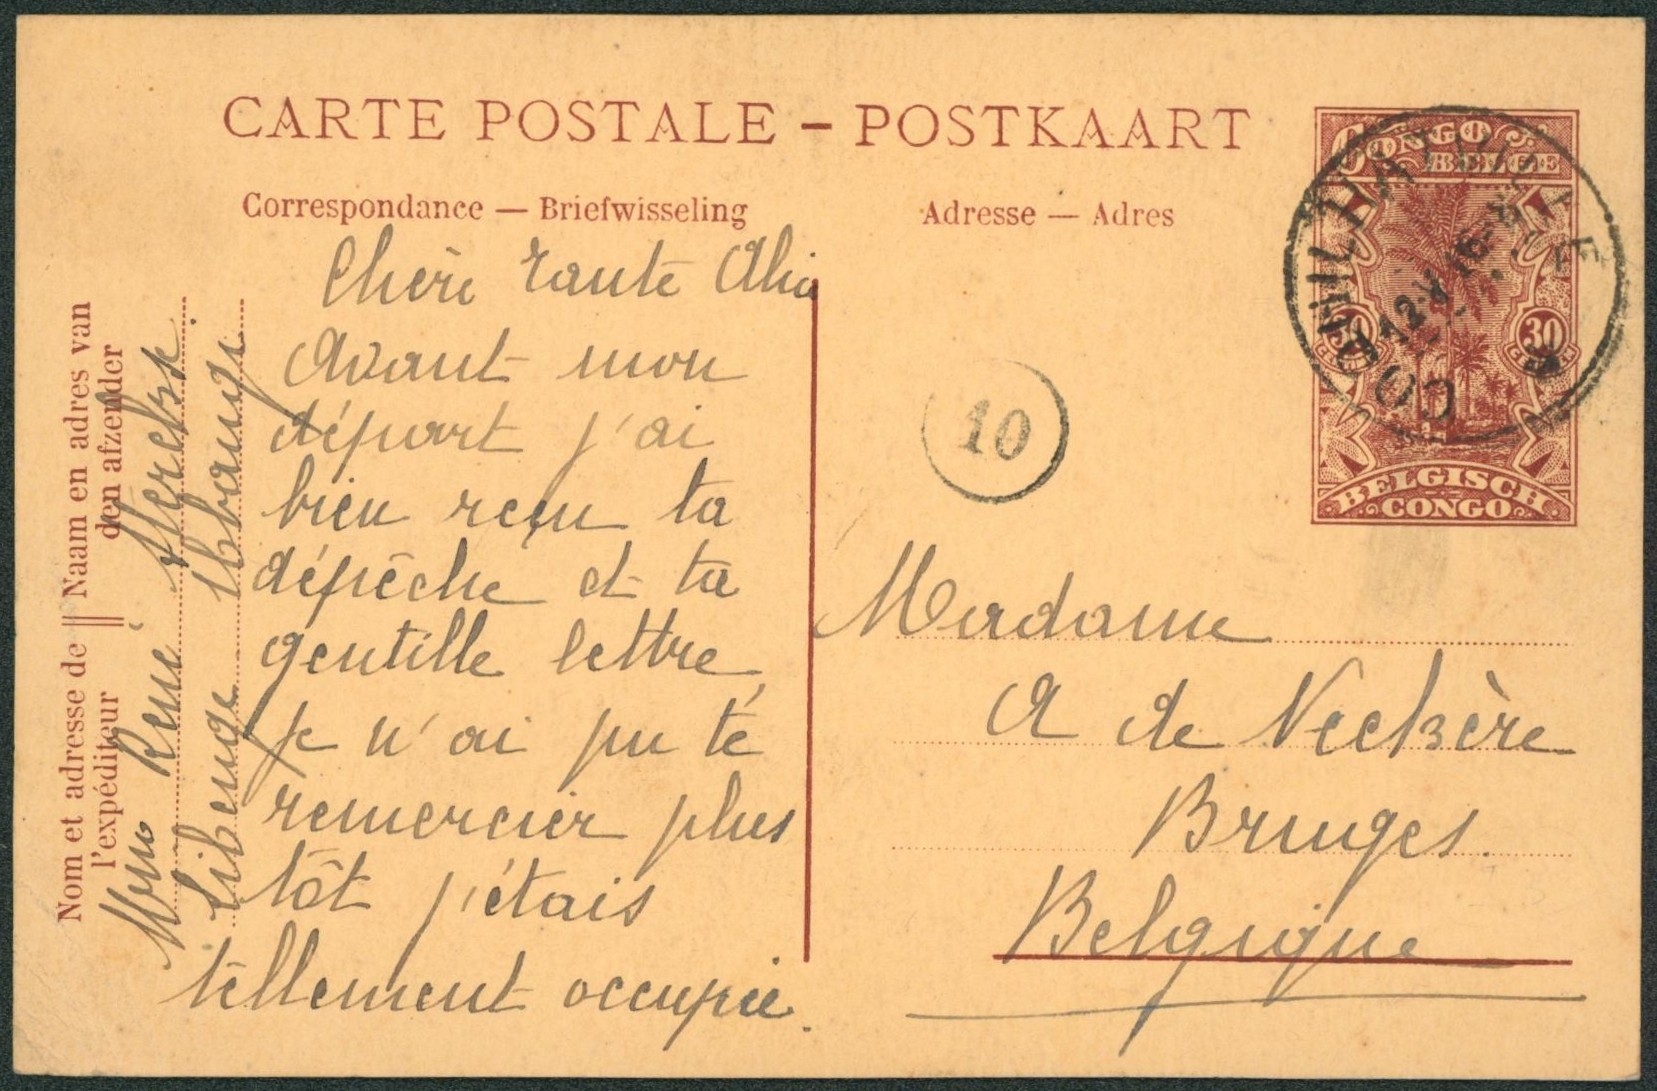 CARTE POSTALE – POSTKAART
Correspondance — Briefwisseling
Adresse — Adres
CONGO
BELGE
30 30
BELGISCH
CONGO
10
Nom et adresse de || Naam en adres van
l'expéditeur den afzender
Mme René
Libenge Ubangi
Chère Tante
Avant mon
départ j'ai
bien reçu ta
dépêche et ta
gentille lettre,
je n'ai pu te
remercier plus
tôt j'étais
tellement occupée.
Madame
A de Neckère
Bruges.
Belgique